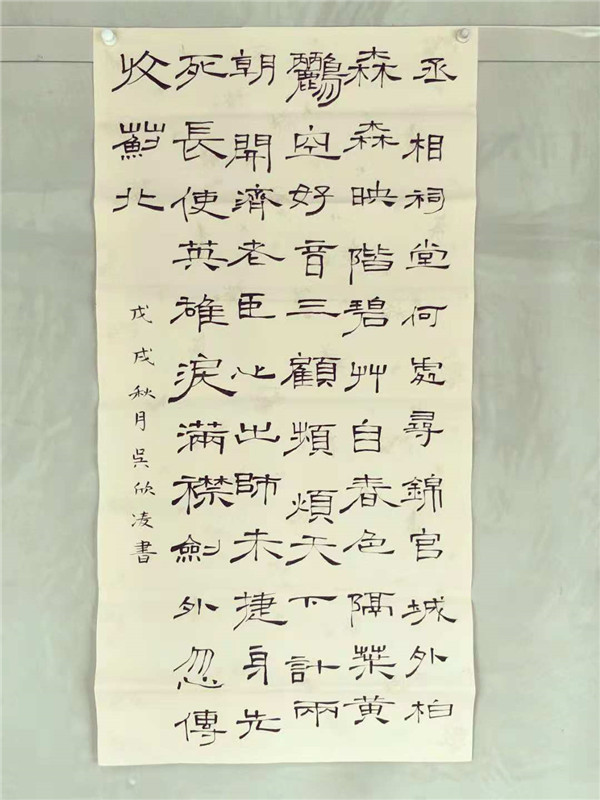 丞相祠堂何處尋錦官城外柏
森森映階碧艸自春色隔葉黃
鸝空好音三顧頻煩天下計兩
朝開濟老臣心出師未捷身先
死長使英雄淚滿襟劍外忽傳
收薊北
戊戌秋月吳欣凌書